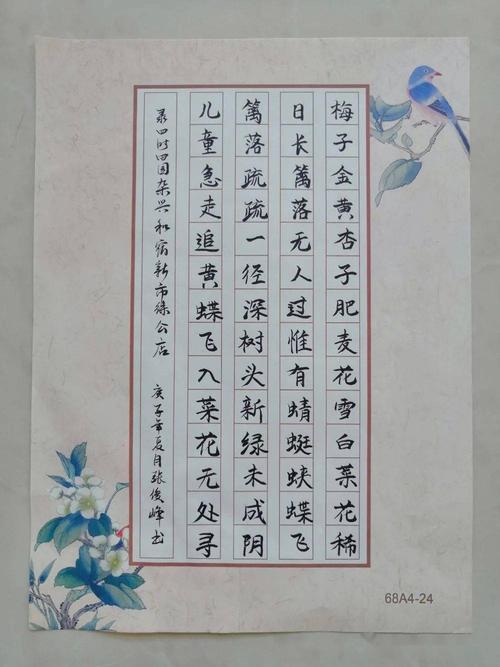 梅子金黄杏子肥麦花雪白菜花稀
日长篱落无人过惟有蜻蜓蛱蝶飞
篱落疏疏一径深树头新绿未成阴
儿童急走追黄蝶飞入菜花无处寻
录四时田园杂兴和宿新市徐公店 庚子年夏月张俊峰书
68A4-24